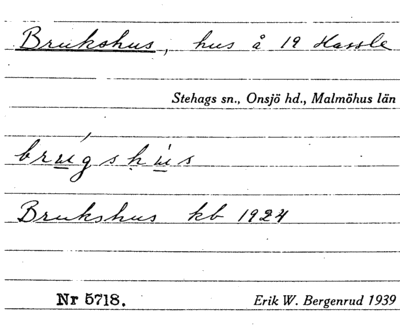 Brukshus, hus å 19 Hassle
Stehags sn., Onsjö hd., Malmöhus län
brúgshùs
Brukshus kb 1924
Nr 5718.
Erik W. Bergenrud 1939